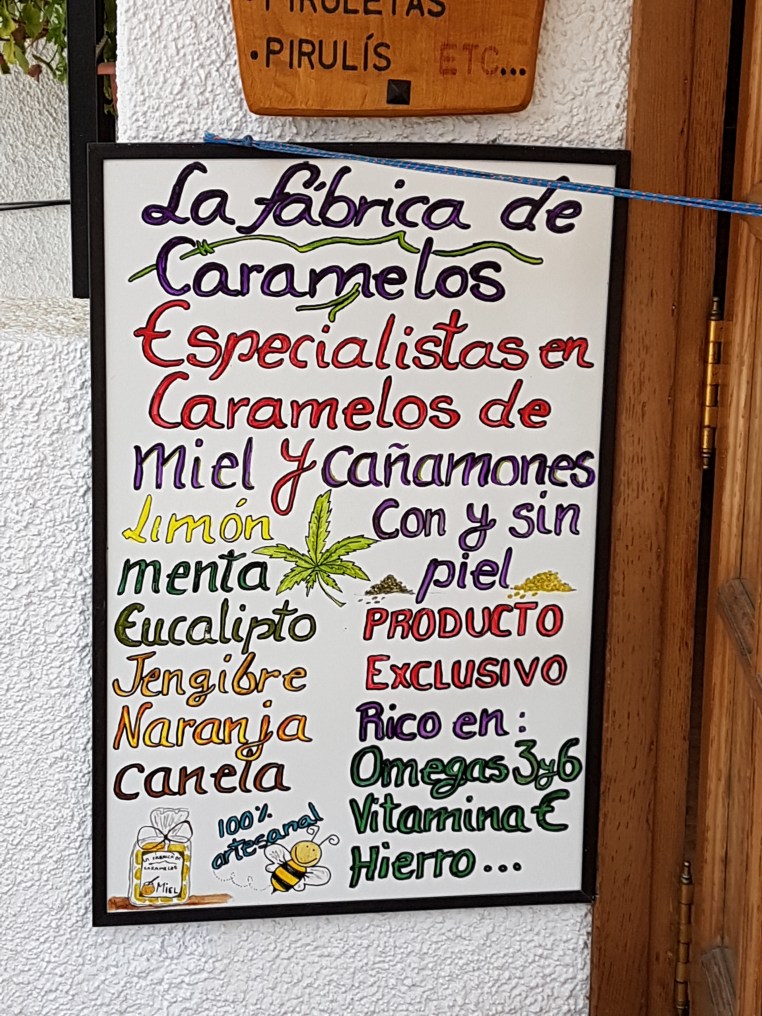 • PIRULETAS
• PIRULÍS ETC...
La fábrica de
Caramelos
Especialistas en
Caramelos de
Miel y cañamones
Limón
menta
Eucalipto
Jengibre
Naranja
canela
Con y sin
piel
PRODUCTO
EXCLUSIVO
Rico en:
Omegas 3 y 6
Vitamina E
Hierro...
100%
artesanal
LA FÁBRICA DE
CARAMELOS
MIEL